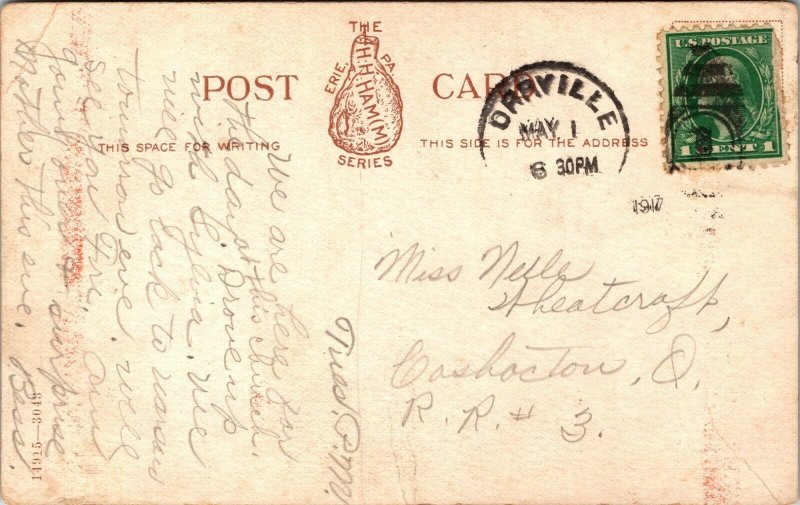 THE
H.H.HAM(M)
ERIE, PA.
SERIES
POST CARD
THIS SPACE FOR WRITING
THIS SIDE IS FOR THE ADDRESS
ORRVILLE
MAY 1
6 30PM
1917
U.S. POSTAGE
1 CENT 1
Tues. P.M.
We are here for
the day at this church.
Drove up
with Sylvia. We
will go back to
tomorrow eve. Well
see you Fri.
going over to surprise
Mother this eve. Bess.
14915 3048
Miss Nelle
Wheatcraft,
Coshocton, O.
R. R. # 3.